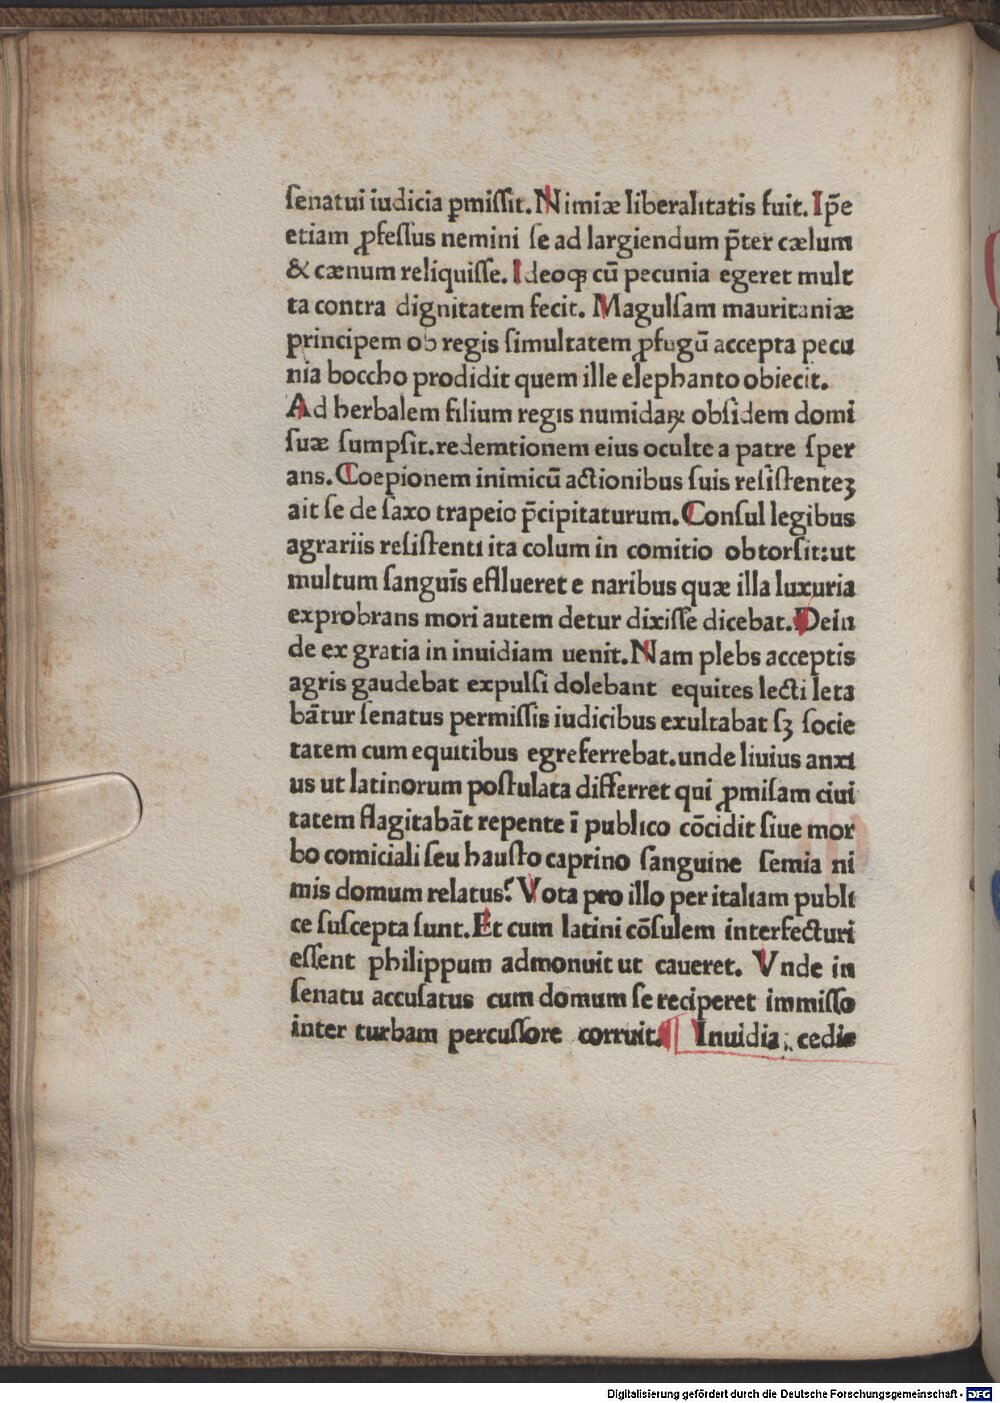 ſenatui iudicia ꝑmiſſit. Nimiæ liberalitatis fuit. Ip̄e
etiam ꝓfeſſus nemini ſe ad largiendum p̄ter cælum
& cænum reliquiſſe. Ideoqꝫ cū pecunia egeret mult
ta contra dignitatem fecit. Magulſam mauritaniæ
principem ob regis ſimultatem ꝓfugū accepta pecu
nia boccho prodidit quem ille elephanto obiecit.
Ad herbalem filium regis numidaꝝ obſidem domi
ſuæ ſumpſit. redemtionem eius oculte a patre ſper
ans. Coepionem inimicū actionibus ſuis reſiſtenteꝫ
ait ſe de ſaxo trapeio p̄cipitaturum. Conſul legibus
agrariis reſiſtenti ita colum in comitio obtorſit: ut
multum ſanguīs efflueret e naribus quæ illa luxuria
exprobrans mori autem detur dixiſſe dicebat. Dein
de ex gratia in inuidiam uenit. Nam plebs acceptis
agris gaudebat expulſi dolebant equites lecti leta
bātur ſenatus permiſſis iudicibus exultabat ſꝫ ſocie
tatem cum equitibus egreferrebat. unde liuius anxi
us ut latinorum poſtulata differret qui ꝓmiſam ciui
tatem flagitabāt repente ī publico cōcidit ſiue mor
bo comiciali ſeu hauſto caprino ſanguine ſemia ni
mis domum relatus? Vota pro illo per italiam publi
ce ſuſcepta ſunt. Et cum latini cōſulem interfecturi
eſſent philippum admonuit ut caueret. Vnde in
ſenatu accuſatus cum domum ſe reciperet immiſſo
inter turbam percuſſore corruit. Inuidia, cedis
Digitalisierung gefördert durch die Deutsche Forschungsgemeinschaft - DFG